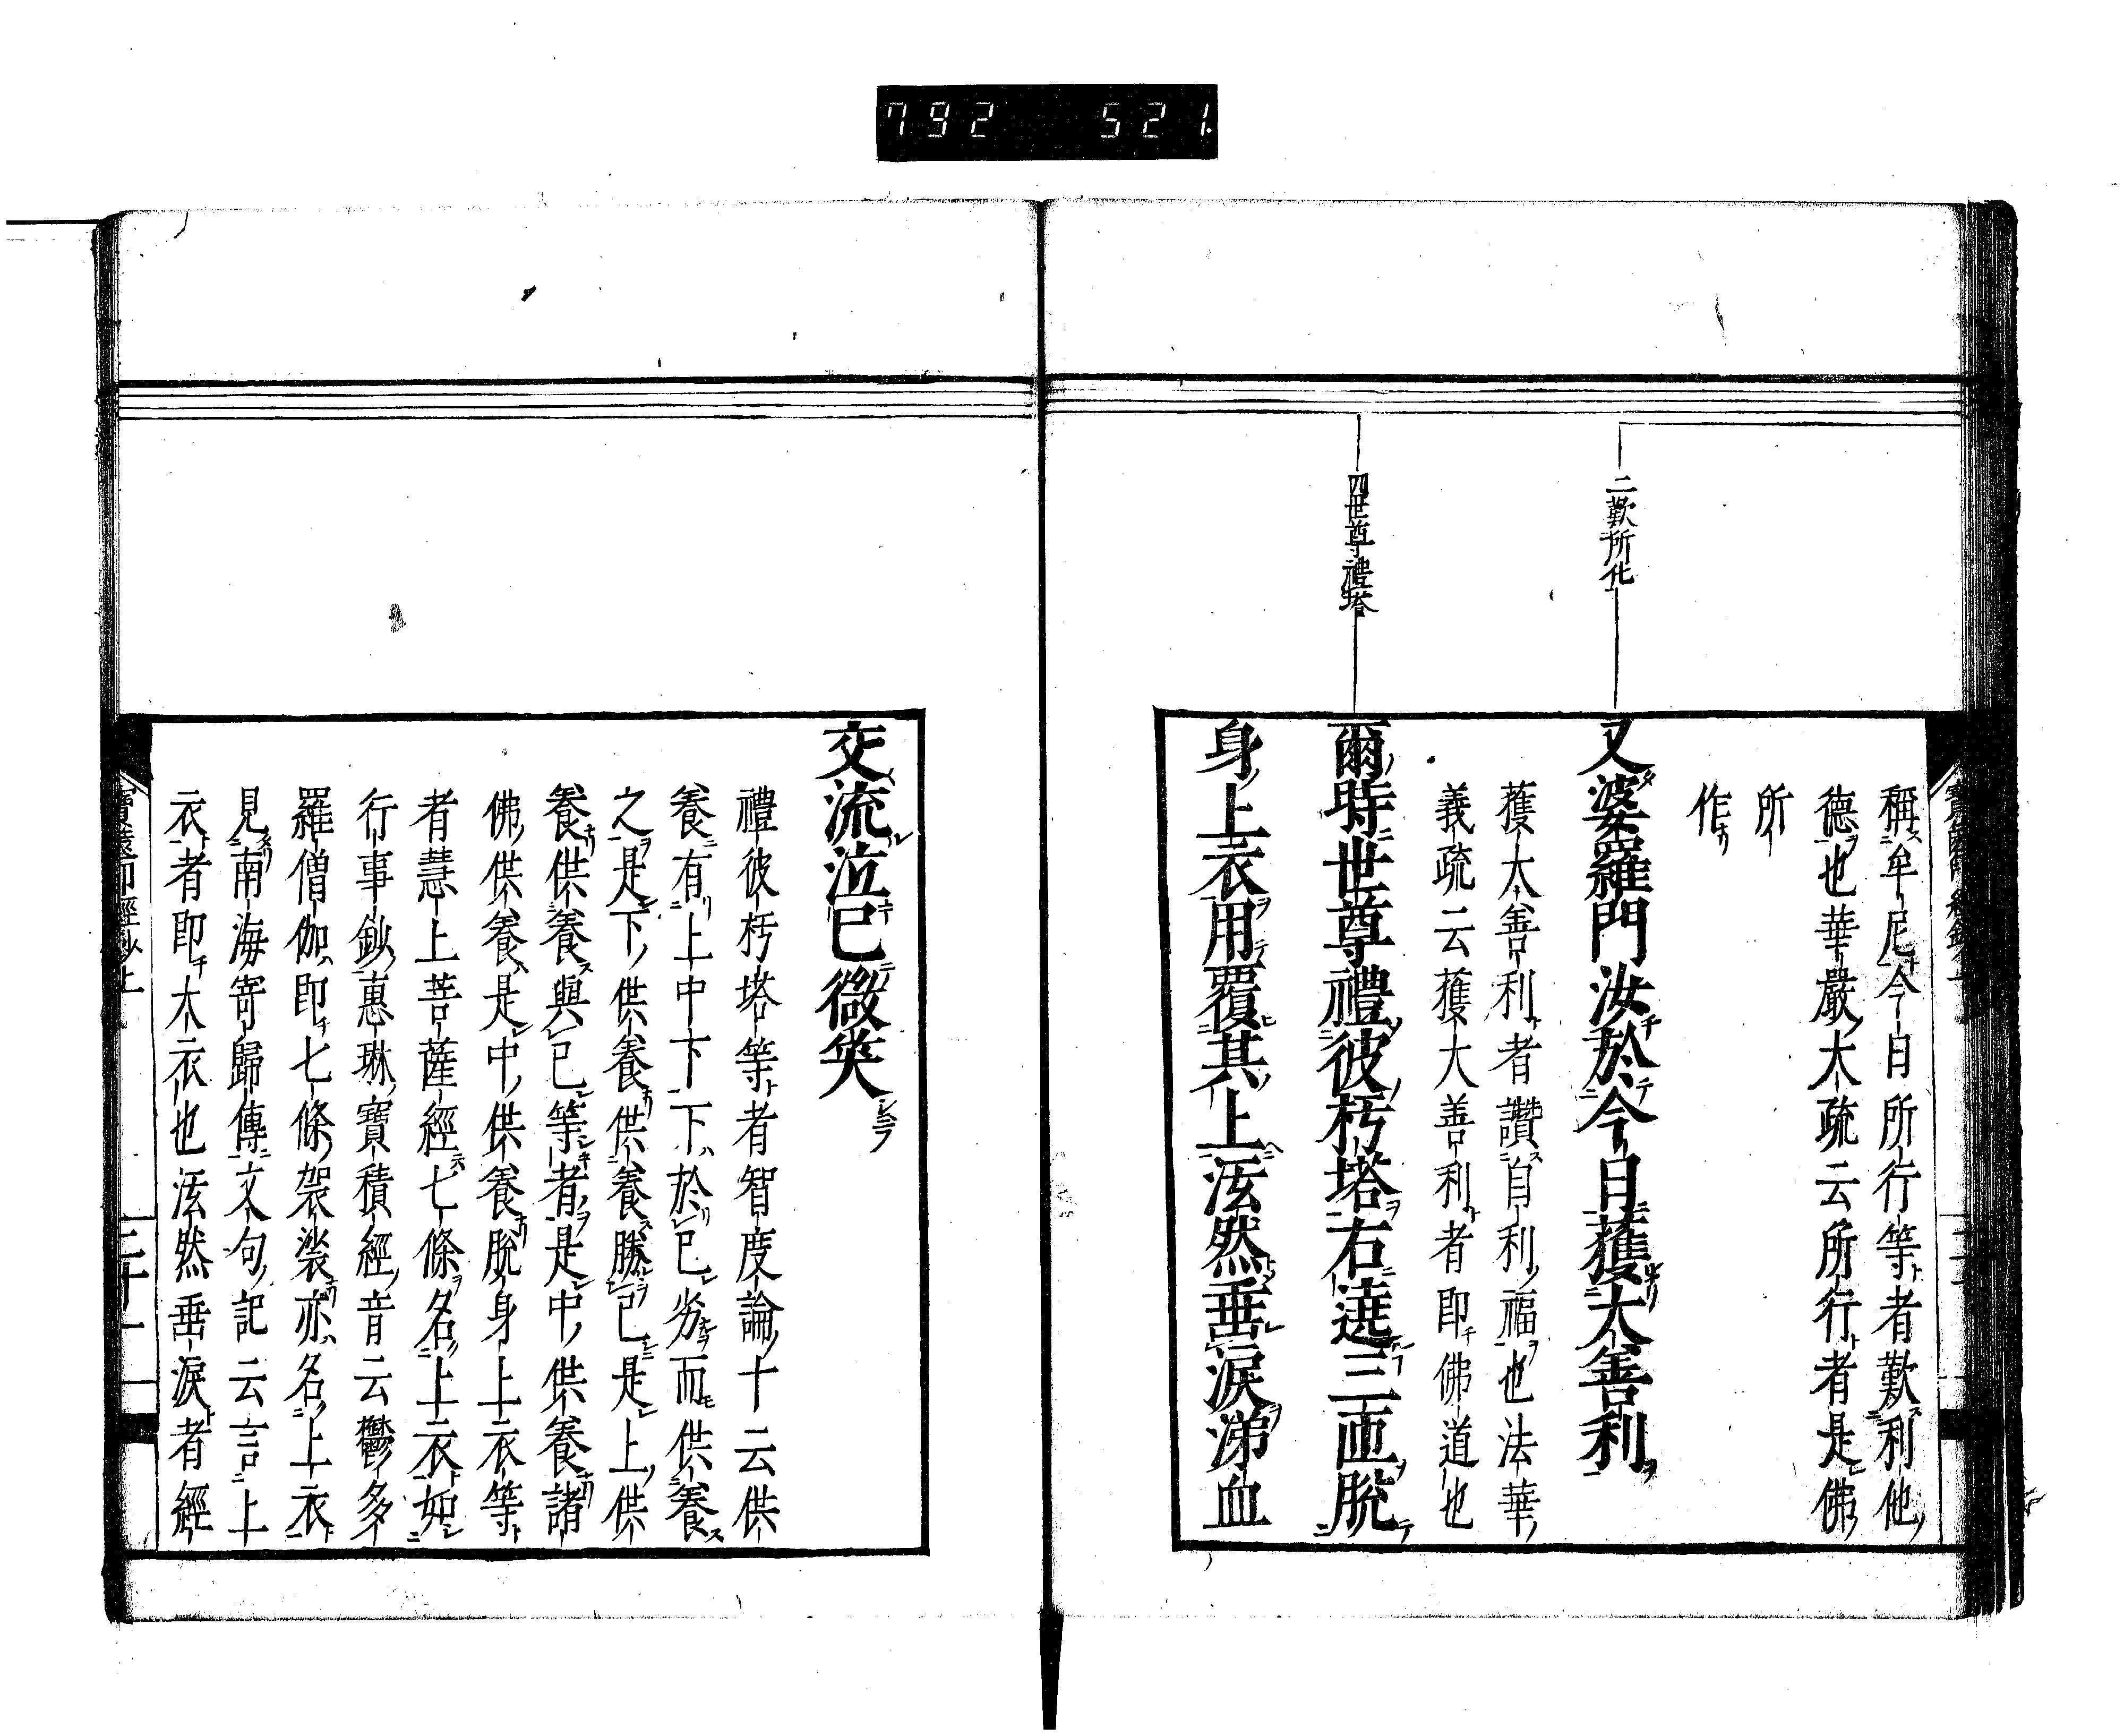 792 521
二歎所化
四世尊禮塔
稱牟尼今日所行等者歎利他
德也華嚴大疏云所行者是佛
所
作
又婆羅門汝於今日獲大善利
獲大善利者讚自利福也法華
義疏云獲大善利者即佛道也
爾時世尊禮彼朽塔右遶三匝脫
身上衣用覆其上泫然垂淚涕血
交流泣已微笑
禮彼朽塔等者智度論十云供
養有上中下下於己劣而供養
之是下供養供養勝己是上供
養供養與己等者是中供養諸
佛供養是中供養脫身上衣等
者慧上菩薩經七條名上衣如
行事鈔惠琳寶積經音云鬱多
羅僧伽即七條袈裟亦名上衣
見南海寄歸傳文句記云言上
衣者即大衣也泫然垂淚者經
二十一